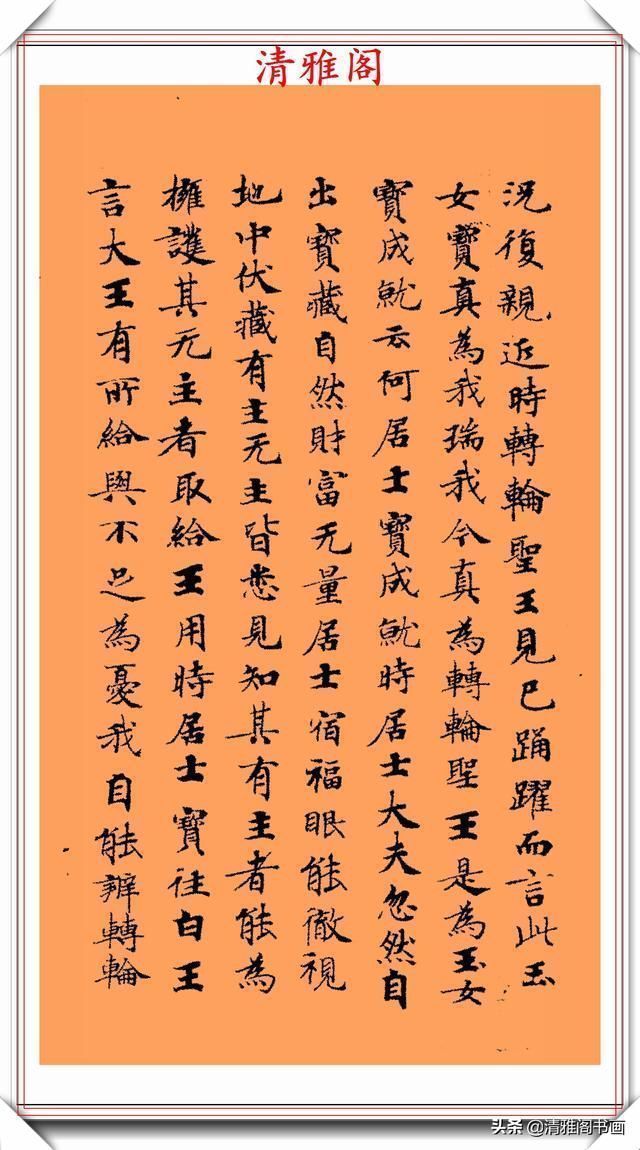 清雅阁
況復親近時轉輪聖王見已踊躍而言此玉
女寶真為我瑞我今真為轉輪聖王是為玉女
寶成就云何居士寶成就時居士大夫忽然自
出寶藏自然財富无量居士宿福眼能徹視
地中伏藏有主无主皆悉見知其有主者能為
擁護其无主者取給王用時居士寶往白王
言大王有所給與不足為憂我自能辦轉輪
头条@清雅阁书画